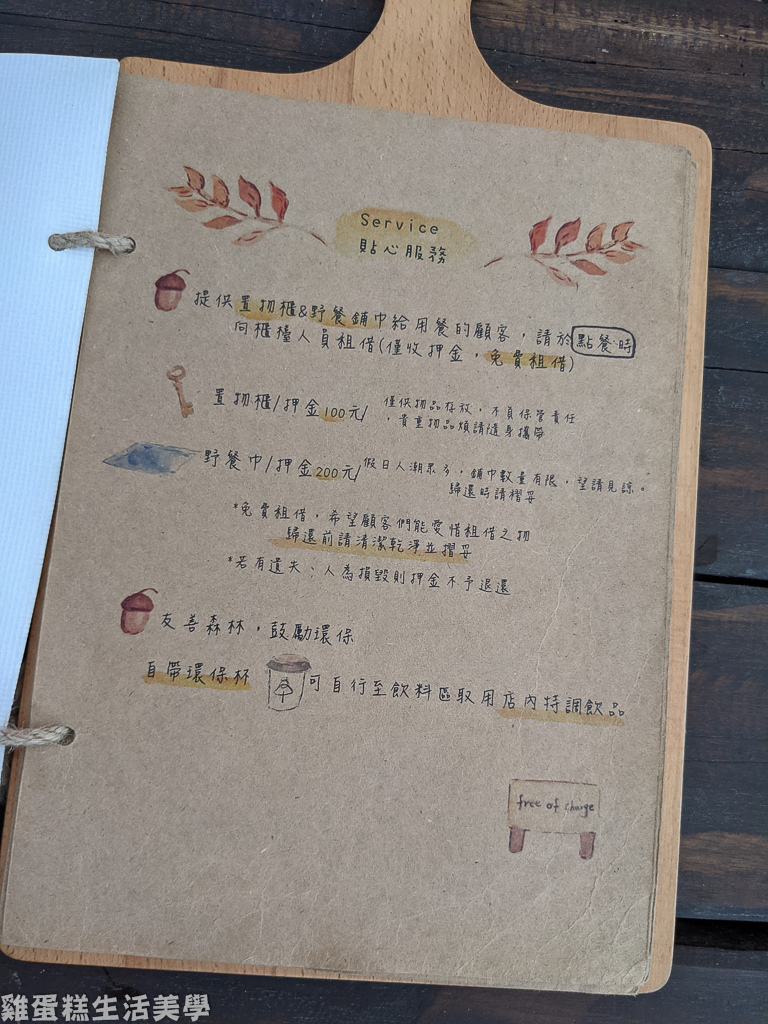 Service
貼心服務
提供置物櫃&野餐鋪巾給用餐的顧客，請於點餐時
向櫃檯人員租借(僅收押金，免費租借)
置物櫃/押金100元/ 僅供物品存放，不負保管責任
，貴重物品煩請隨身攜帶
野餐巾/押金200元/ 假日人潮眾多，鋪巾數量有限，望請見諒。
歸還時請摺妥
*免費租借，希望顧客們能愛惜租借之物
歸還前請清潔乾淨並摺妥
*若有遺失、人為損毀則押金不予退還
友善森林，鼓勵環保
自帶環保杯 可自行至飲料區取用店內特調飲品
free of charge
雞蛋糕生活美學